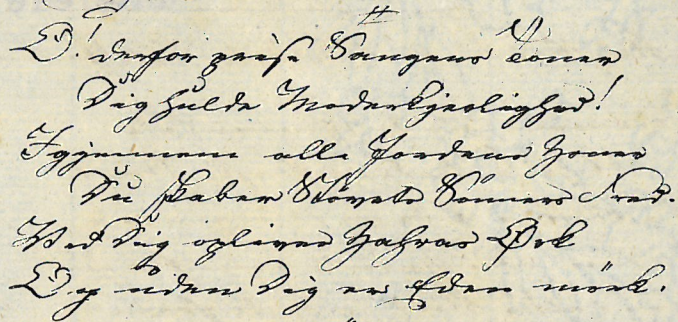 O! derfor prise Sangens Toner
Dig hulde Moderkjerlighed!
Igjennem alle Jordens Zoner
Du skaber Stövets Sönners Fred.
Ved Dig oplives Zahras Ørk
Og uden Dig er Eden mörk.